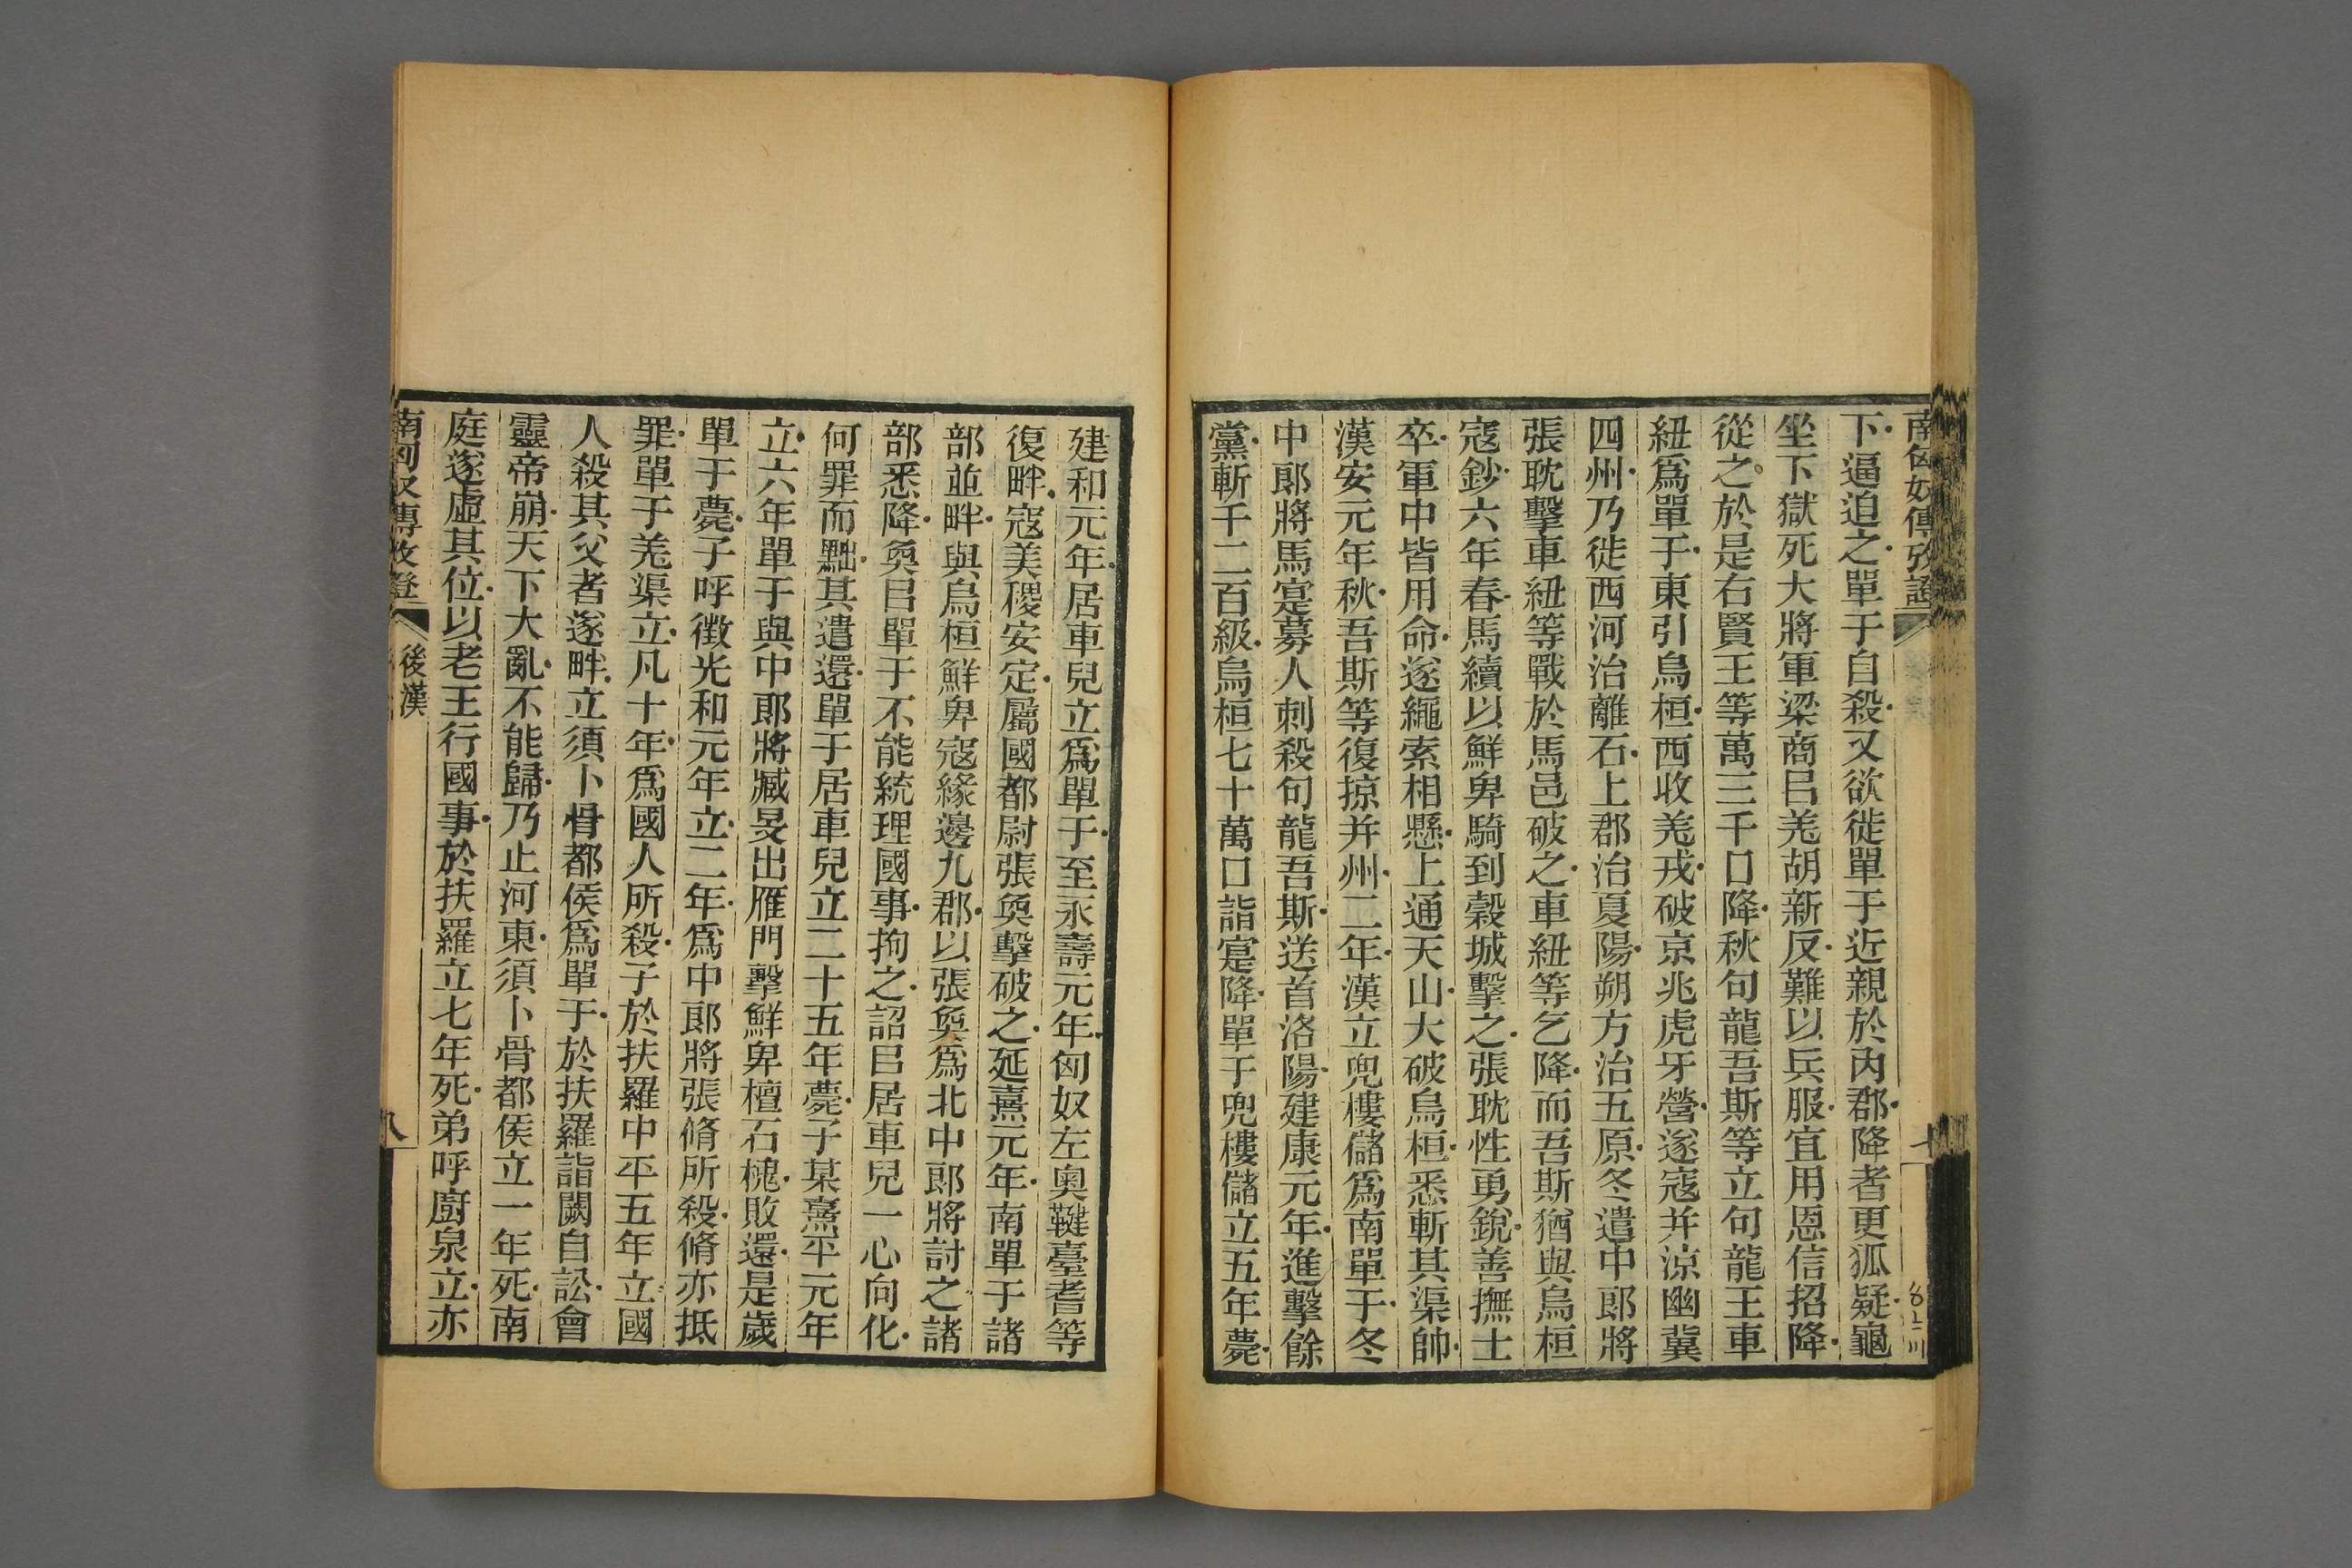 南匈奴傳攷證
下逼迫之單于自殺又欲徙單于近親於內郡降者更狐疑龜
坐下獄死大將軍梁商㠯羌胡新反難以兵服宜用恩信招降
從之於是右賢王等萬三千口降秋句龍吾斯等立句龍王車
紐爲單于東引烏桓西收羌戎破京兆虎牙營遂寇并涼幽冀
四州乃徙西河治離石上郡治夏陽朔方治五原冬遣中郎將
張耽擊車紐等戰於馬邑破之車紐等乞降而吾斯猶與烏桓
寇鈔六年春馬續以鮮卑騎到穀城擊之張耽性勇銳善撫士
卒軍中皆用命遂繩索相懸上通天山大破烏桓悉斬其渠帥
漢安元年秋吾斯等復掠并州二年漢立兜樓儲爲南單于冬
中郎將馬寔募人刺殺句龍吾斯送首洛陽建康元年進擊餘
黨斬千二百級烏桓七十萬口詣寔降單于兜樓儲立五年薨
建和元年居車兒立爲單于至永壽元年匈奴左奧鞬臺耆等
復畔寇美稷安定屬國都尉張奐擊破之延熹元年南單于諸
部並畔與烏桓鮮卑寇緣邊九郡以張奐爲北中郎將討之諸
部悉降奐㠯單于不能統理國事拘之詔㠯居車兒一心向化
何罪而黜其遣還單于居車兒立二十五年薨子某熹平元年
立六年單于與中郎將臧旻出雁門擊鮮卑檀石槐敗還是歲
單于薨子呼徵光和元年立二年爲中郎將張脩所殺脩亦抵
罪單于羌渠立凡十年爲國人所殺子於扶羅中平五年立國
人殺其父者遂畔立須卜骨都侯爲單于於扶羅詣闕自訟會
靈帝崩天下大亂不能歸乃止河東須卜骨都侯立一年死南
庭遂虛其位以老王行國事於扶羅立七年死弟呼廚泉立亦
南匈奴傳攷證 後漢 八